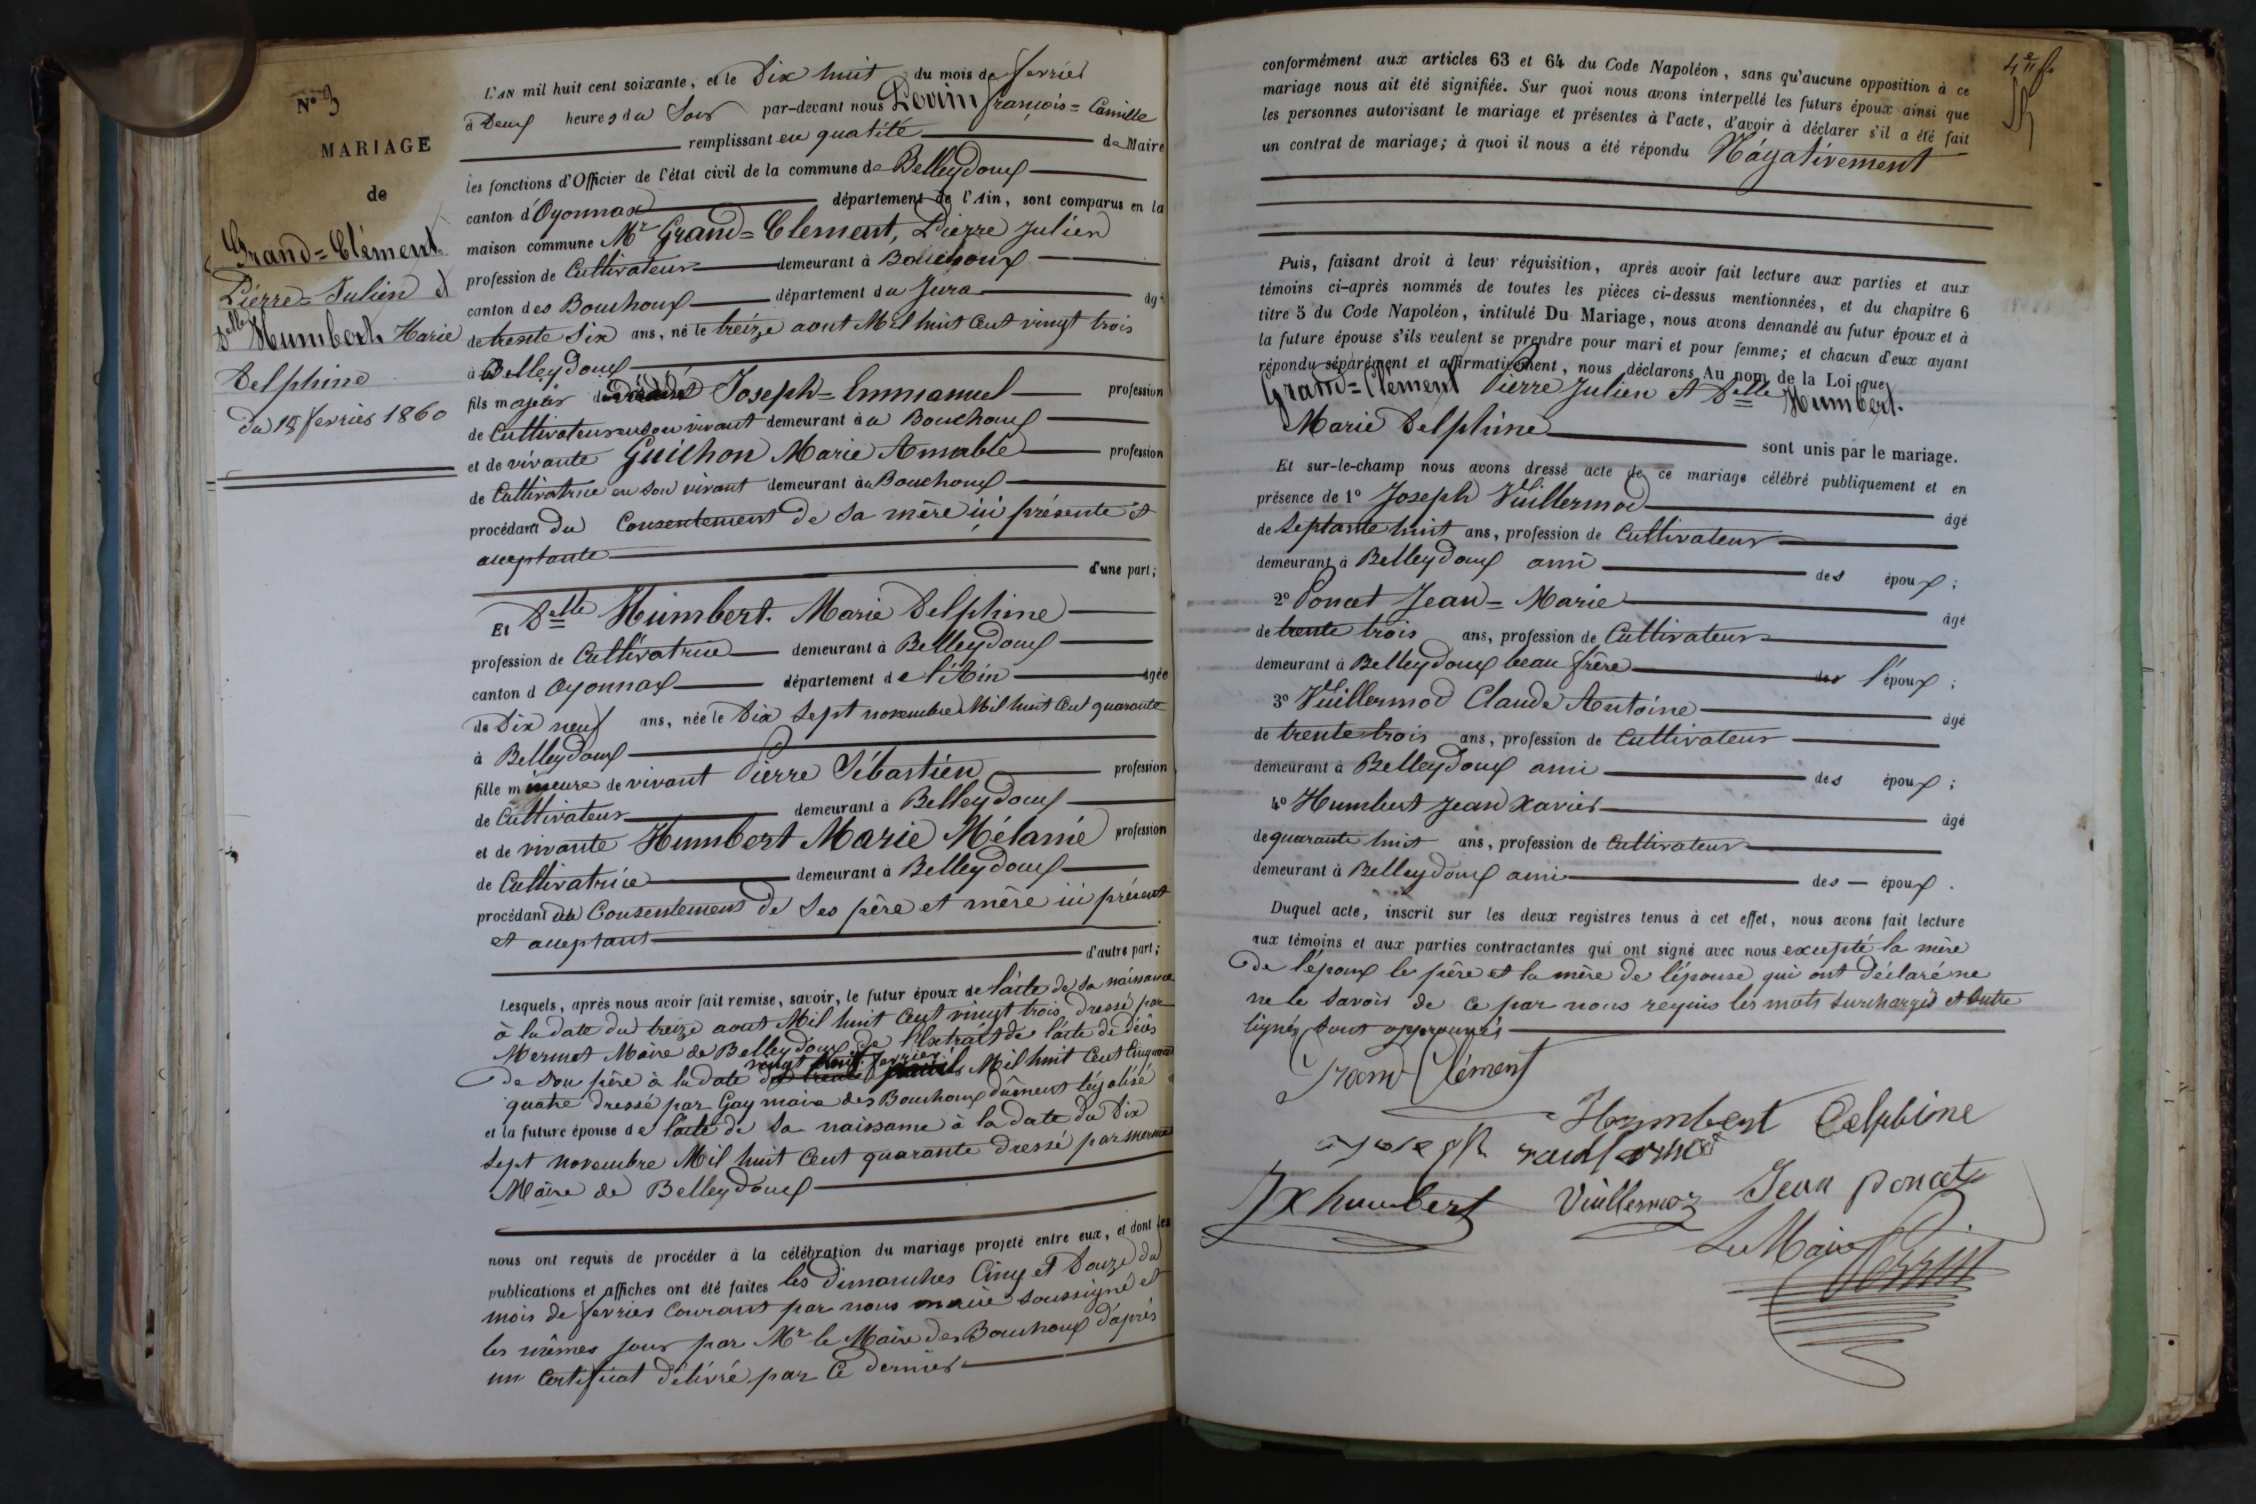 N° 3
MARIAGE
de
Grand=Clément
Pierre=Julien et
Delle Humbert Marie
Delphine
du 18 fevrier 1860
L'AN mil huit cent soixante, et le Dix huit du mois de fevrier
à Deux heures du Soir par-devant nous Perrin françois=Camille
remplissant en qualité de Maire
les fonctions d'Officier de l'état civil de la commune de Belleydoux
canton d'Oyonnax département de l'Ain, sont comparus en la
maison commune Mr Grand=Clement, Pierre Julien
profession de Cultivateur demeurant à Bouchoux
canton des Bouchoux département du Jura âgé
de trente Six ans, né le treize aout Mil huit Cent vingt trois
à Belleydoux
fils majeur de Joseph=Emmanuel profession
de Cultivateur en son vivant demeurant au Bouchoux
et de vivante Guichon Marie Amable profession
de Cultivatrice en son vivant demeurant au Bouchoux
procédant du Consentement de sa mère ici présente et
acceptante
d'une part;
Et Delle Humbert. Marie Delphine
profession de Cultivatrice demeurant à Belleydoux
canton d Oyonnax département de l'Ain âgée
de Dix neuf ans, née le Dix Sept novembre Mil huit Cent quarante
à Belleydoux
fille mineure de vivant Pierre Sébastien profession
de Cultivateur demeurant à Belleydoux
et de vivante Humbert Marie Mélanie profession
de Cultivatrice demeurant à Belleydoux
procédant du Consentement de Ses père et mère ici présent
et acceptant
d'autre part;
Lesquels, après nous avoir fait remise, savoir, le futur époux de l'acte de sa naissance
à la date du treize aout Mil huit Cent vingt trois, dressé par
Mermet Maire de Belleydoux de l'Extrait de l'acte de décès
vingt fevrier
de Son père à la date Mil huit Cent Cinquante
quatre dressé par Gay maire des Bouchoux dûment légalisé
et la future épouse de l'acte de Sa naissance à la date du Dix
Sept novembre Mil huit Cent quarante dressé par mermet
Maire de Belleydoux
nous ont requis de procéder à la célébration du mariage projeté entre eux, et dont les
publications et affiches ont été faites les Dimanches Cinq et Douze du
mois de fevrier Courant par nous maire Soussigné et
les mêmes jour par Mr le Maire des Bouchoux d'après
un Certificat délivré par Ce dernier
conformément aux articles 63 et 64 du Code Napoléon, sans qu'aucune opposition à ce
mariage nous ait été signifiée. Sur quoi nous avons interpellé les futurs époux ainsi que
les personnes autorisant le mariage et présentes à l'acte, d'avoir à déclarer s'il a été fait
un contrat de mariage; à quoi il nous a été répondu Négativement
Puis, faisant droit à leur réquisition, après avoir fait lecture aux parties et aux
témoins ci-après nommés de toutes les pièces ci-dessus mentionnées, et du chapitre 6
titre 5 du Code Napoléon, intitulé Du Mariage, nous avons demandé au futur époux et à
la future épouse s'ils veulent se prendre pour mari et pour femme; et chacun d'eux ayant
répondu séparément et affirmativement, nous déclarons Au nom de la Loi que
Grand=Clement Pierre Julien et Delle Humbert.
Marie Delphine sont unis par le mariage.
Et sur-le-champ nous avons dressé acte de ce mariage célébré publiquement et en
présence de 1° Joseph Vuillermod âgé
de Septante huit ans, profession de Cultivateur
demeurant à Belleydoux ami des époux;
2° Poncet Jean=Marie âgé
de trente trois ans, profession de Cultivateur
demeurant à Belleydoux beau frère des l'époux;
3° Vuillermod Claude Antoine âgé
de trente trois ans, profession de Cultivateur
demeurant à Belleydoux ami des époux;
4° Humbert Jean Xavier âgé
de quarante huit ans, profession de Cultivateur
demeurant à Belleydoux ami des époux.
Duquel acte, inscrit sur les deux registres tenus à cet effet, nous avons fait lecture
aux témoins et aux parties contractantes qui ont signé avec nous excepté la mère
De l'époux le père et la mère de l'épouse qui ont déclaré ne
ne le Savoir de Ce par nous requis les mots Surchargés et Outre
lignés Sont approuvés
Grand Clément
Humbert Delphine
joseph
JX humbert Vuillermoz Jean poncet
Le Maire Perrin